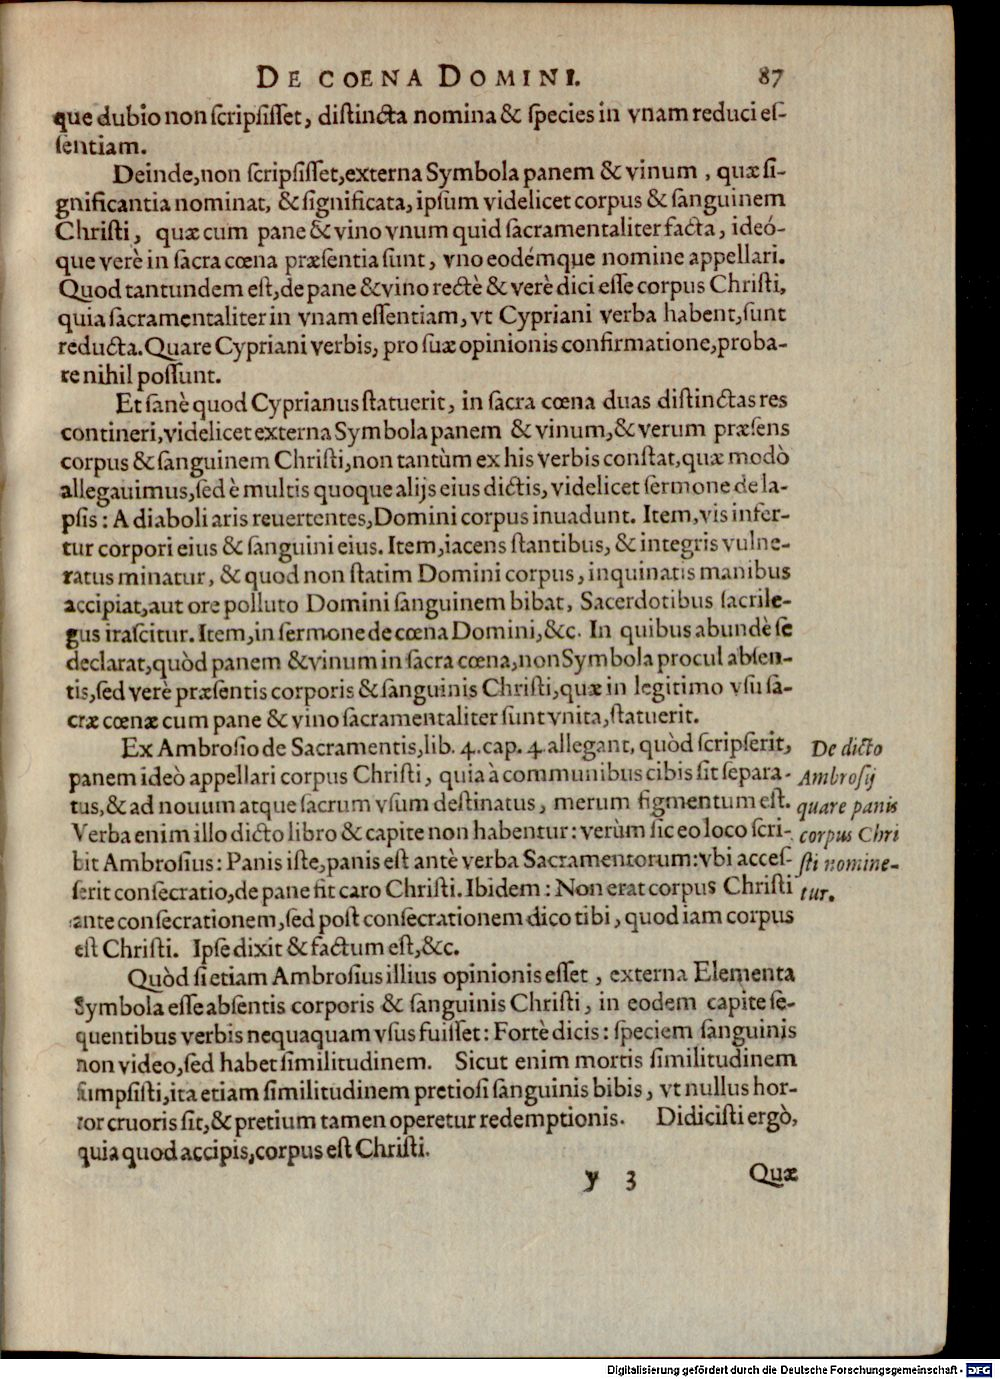 DE COENA DOMINI. 87
que dubio non ſcripſiſſet, diſtincta nomina & ſpecies in vnam reduci eſ-
ſentiam.
Deinde, non ſcripſiſſet, externa Symbola panem & vinum, quæ ſi-
gnificantia nominat, & ſignificata, ipſum videlicet corpus & ſanguinem
Chriſti, quæ cum pane & vino vnum quid ſacramentaliter facta, ideó-
que verè in ſacra cœna præſentia ſunt, vno eodémque nomine appellari.
Quod tantundem eſt, de pane & vino rectè & verè dici eſſe corpus Chriſti,
quia ſacramentaliter in vnam eſſentiam, vt Cypriani verba habent, ſunt
reducta. Quare Cypriani verbis, pro ſuæ opinionis confirmatione, proba-
re nihil poſſunt.
Et ſanè quod Cyprianus ſtatuerit, in ſacra cœna duas diſtinctas res
contineri, videlicet externa Symbola panem & vinum, & verum præſens
corpus & ſanguinem Chriſti, non tantùm ex his verbis conſtat, quæ modò
allegauimus, ſed è multis quoque alijs eius dictis, videlicet ſermone de la-
pſis: A diaboli aris reuertentes, Domini corpus inuadunt. Item, vis infer-
tur corpori eius & ſanguini eius. Item, iacens ſtantibus, & integris vulne-
ratus minatur, & quod non ſtatim Domini corpus, inquinatis manibus
accipiat, aut ore polluto Domini ſanguinem bibat, Sacerdotibus ſacrile-
gus iraſcitur. Item, in ſermone de cœna Domini, &c. In quibus abundè ſe
declarat, quòd panem & vinum in ſacra cœna, non Symbola procul abſen-
tis, ſed verè præſentis corporis & ſanguinis Chriſti, quæ in legitimo vſu ſa-
cræ cœnæ cum pane & vino ſacramentaliter ſunt vnita, ſtatuerit.
Ex Ambroſio de Sacramentis, lib. 4. cap. 4. allegant, quòd ſcripſerit,
panem ideò appellari corpus Chriſti, quia à communibus cibis ſit ſepara-
tus, & ad nouum atque ſacrum vſum deſtinatus, merum figmentum eſt.
Verba enim illo dicto libro & capite non habentur: verùm ſic eo loco ſcri-
bit Ambroſius: Panis iſte, panis eſt antè verba Sacramentorum: vbi acceſ-
ſerit conſecratio, de pane fit caro Chriſti. Ibidem: Non erat corpus Chriſti
ante conſecrationem, ſed poſt conſecrationem dico tibi, quod iam corpus
eſt Chriſti. Ipſe dixit & factum eſt, &c.
De dicto
Ambroſij
quare panis
corpus Chri
ſti nomine-
tur.
Quòd ſi etiam Ambroſius illius opinionis eſſet, externa Elementa
Symbola eſſe abſentis corporis & ſanguinis Chriſti, in eodem capite ſe-
quentibus verbis nequaquam vſus fuiſſet: Fortè dicis: ſpeciem ſanguinis
non video, ſed habet ſimilitudinem. Sicut enim mortis ſimilitudinem
ſumpſiſti, ita etiam ſimilitudinem pretioſi ſanguinis bibis, vt nullus hor-
ror cruoris ſit, & pretium tamen operetur redemptionis. Didiciſti ergò,
quia quod accipis, corpus eſt Chriſti.
y 3 Quæ
Digitalisierung gefördert durch die Deutsche Forschungsgemeinschaft - DFG